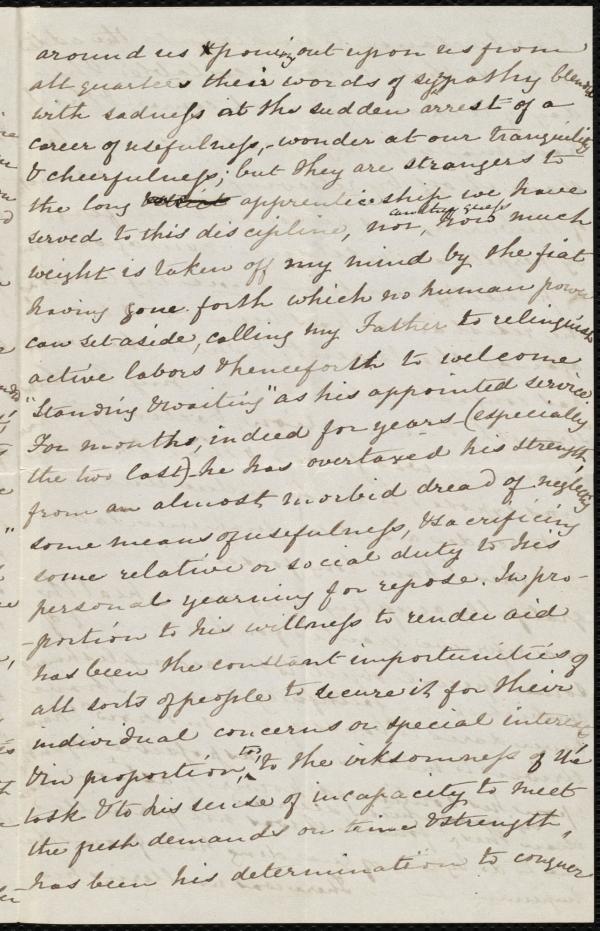 around us pouring out upon us from
all quarters their words of sympathy blended
with sadness at the sudden arrest of a
career of usefulness,- wonder at our tranquility
& cheerfulness; but they are strangers to
the long apprenticeship we have
served to this discipline, nor, can they guess how much
weight is taken off my mind by the fiat
having gone forth which no human power
can set aside, calling my Father to relinquish
active labors & henceforth to welcome
"Standing & waiting" as his appointed service.
For months, indeed for years - (especially
the two last) - he has overtaxed his strength,
from an almost morbid dread of neglecting
some means of usefulness, & sacrificing
some relative or social duty to his
personal yearning for repose. In pro-
-portion to his willness to render aid
has been the constant importunities of
all sorts of people to secure it for their
individual concerns or special interest
& in proportion, too, to the irksomness of the
task & to his sense of incapacity to meet
the fresh demands on time & strength,
has been his determination to conquer